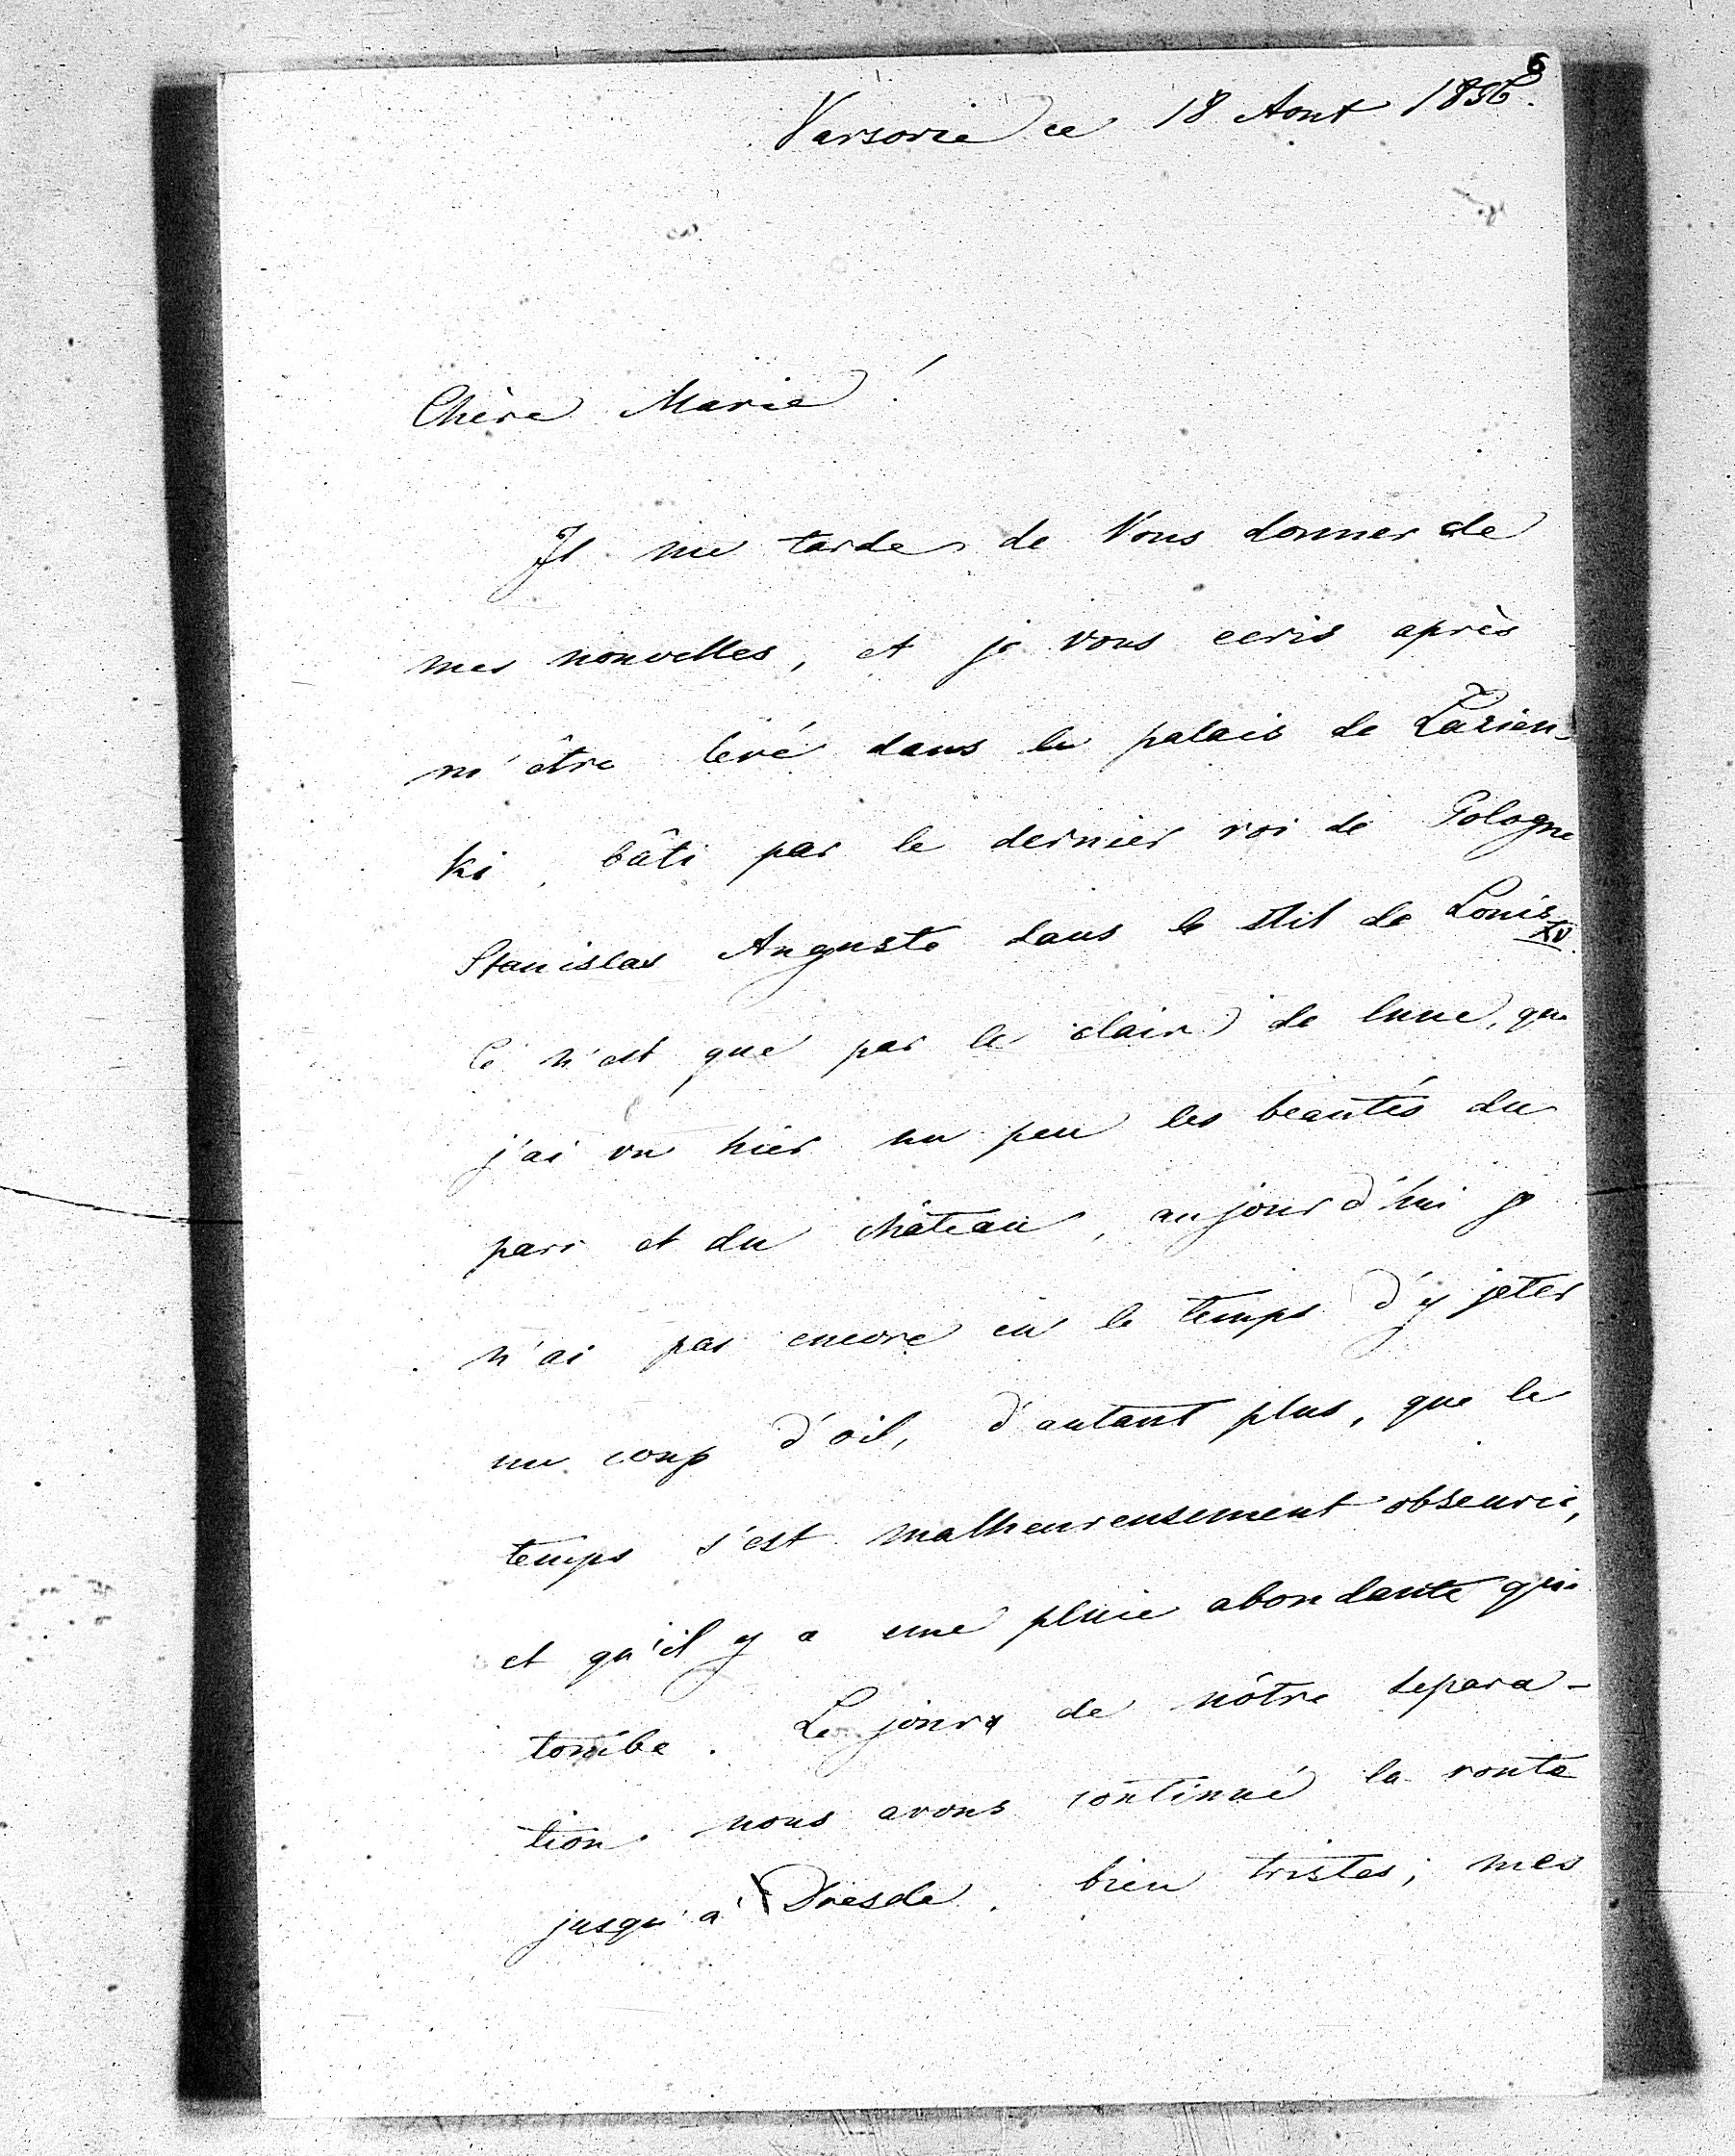 6
Varsovie ce 18 Aout 1856.
Chère Marie!
Il me tarde de Vous donner de
mes nouvelles, et je vous ecris après
m'être levé dans le palais de Lazien-
ki, bâti par le dernier roi de Pologne
Stanislas Auguste dans le stil de Louis XV.
Ce n'est que par le clair de lune, que
j'ai vu hier un peu les beautés du
parc et du château, aujourd'hui je
n'ai pas encore eu le temps d'y jeter
un coup d'oil, d'autant plus, que le
temps s'est malheureusement obscurci,
et qu'il y a une pluie abondante qui
tombe. Le jour de nôtre separa-
tion nous avons continué la route
jusqu'à Dresde, bien tristes; mes